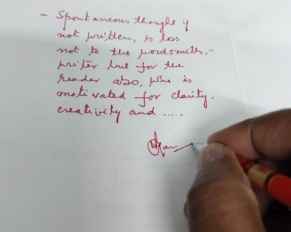 - Spontaneous thought if
not written, is loss
not to the wordsmith,-
writer but for the
reader also, who is
motivated for clarity,
creativity and .....